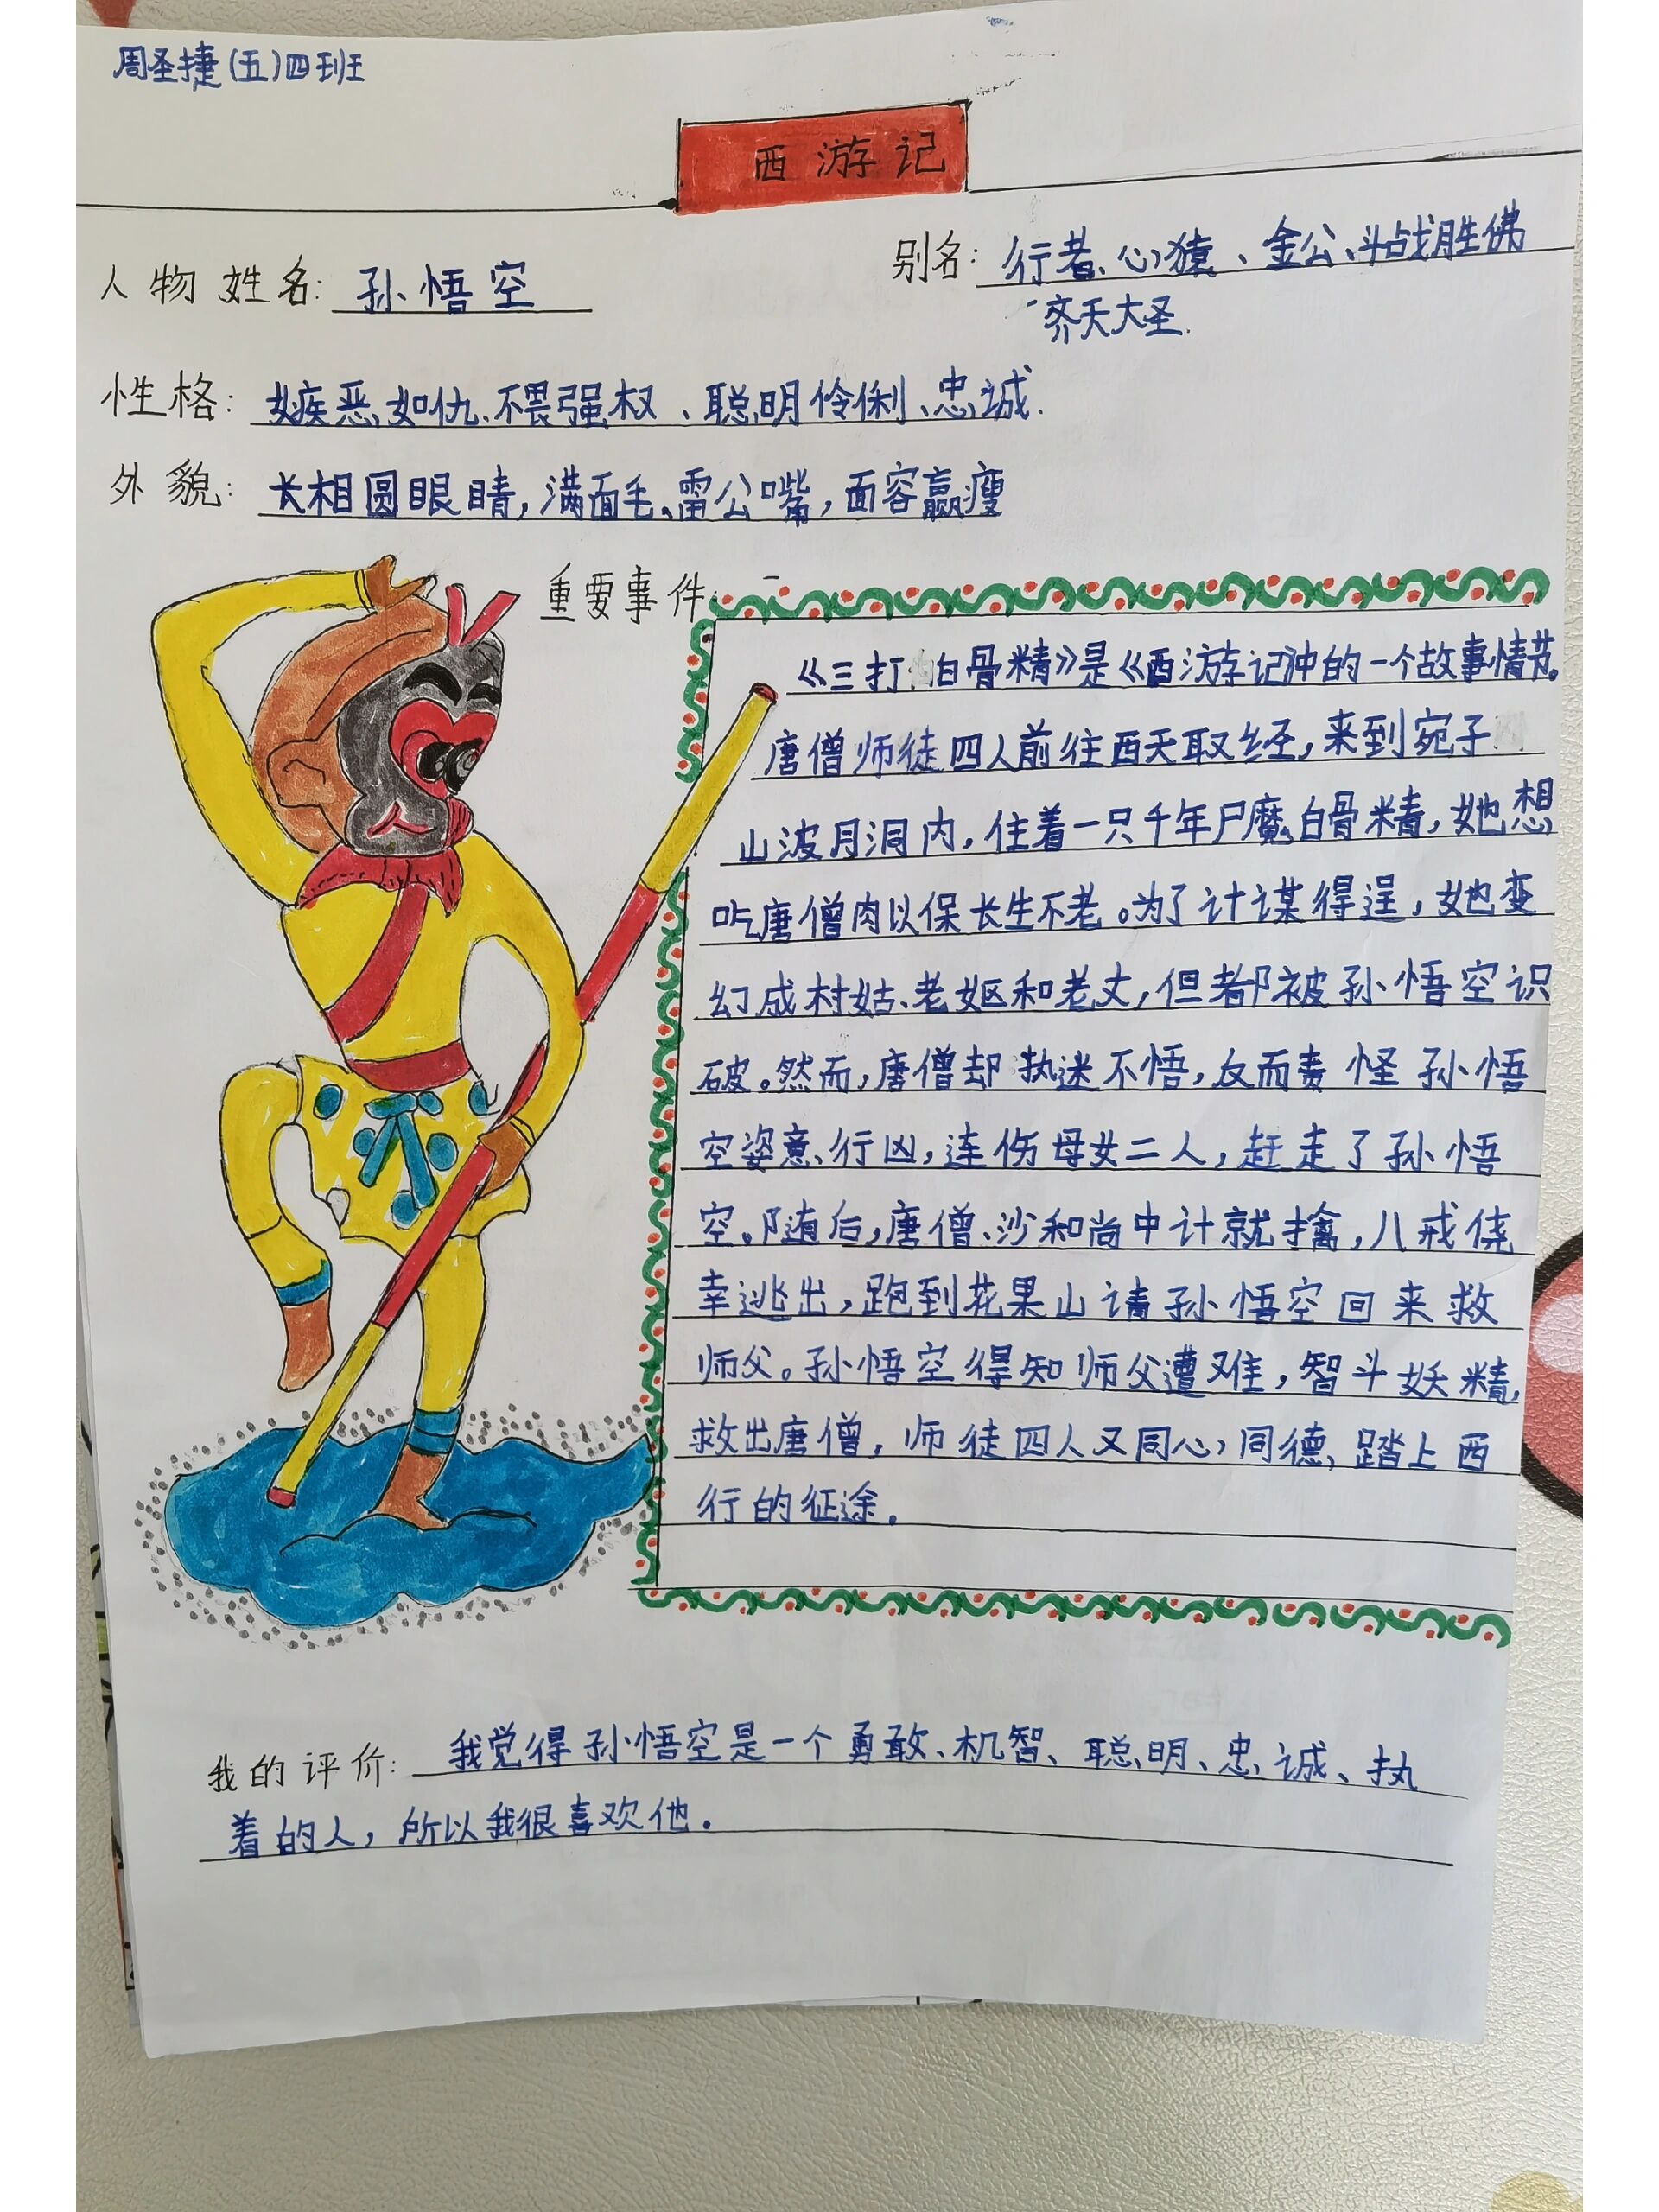 周圣捷(五)四班
西游记
人物姓名: 孙悟空
别名: 行者、心猿、金公、斗战胜佛
齐天大圣.
性格: 嫉恶如仇、不畏强权、聪明伶俐、忠诚.
外貌: 长相圆眼睛,满面毛、雷公嘴,面容赢瘦
重要事件:
《三打白骨精》是《西游记》中的一个故事情节。
唐僧师徒四人前往西天取经,来到宛子
山波月洞内,住着一只千年尸魔白骨精,她想
吃唐僧肉以保长生不老。为了计谋得逞,她变
幻成村姑、老妪和老丈,但都被孙悟空识
破。然而,唐僧却执迷不悟,反而责怪孙悟
空姿意行凶,连伤母女二人,赶走了孙悟
空。随后,唐僧、沙和尚中计就擒,八戒侥
幸逃出,跑到花果山请孙悟空回来救
师父。孙悟空得知师父遭难,智斗妖精,
救出唐僧,师徒四人又同心同德,踏上西
行的征途.
我的评价: 我觉得孙悟空是一个勇敢、机智、聪明、忠诚、执
着的人,所以我很喜欢他。